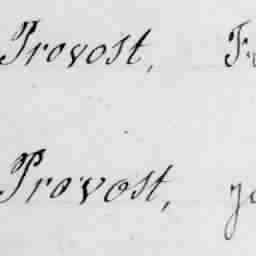 Provost,
Provost,